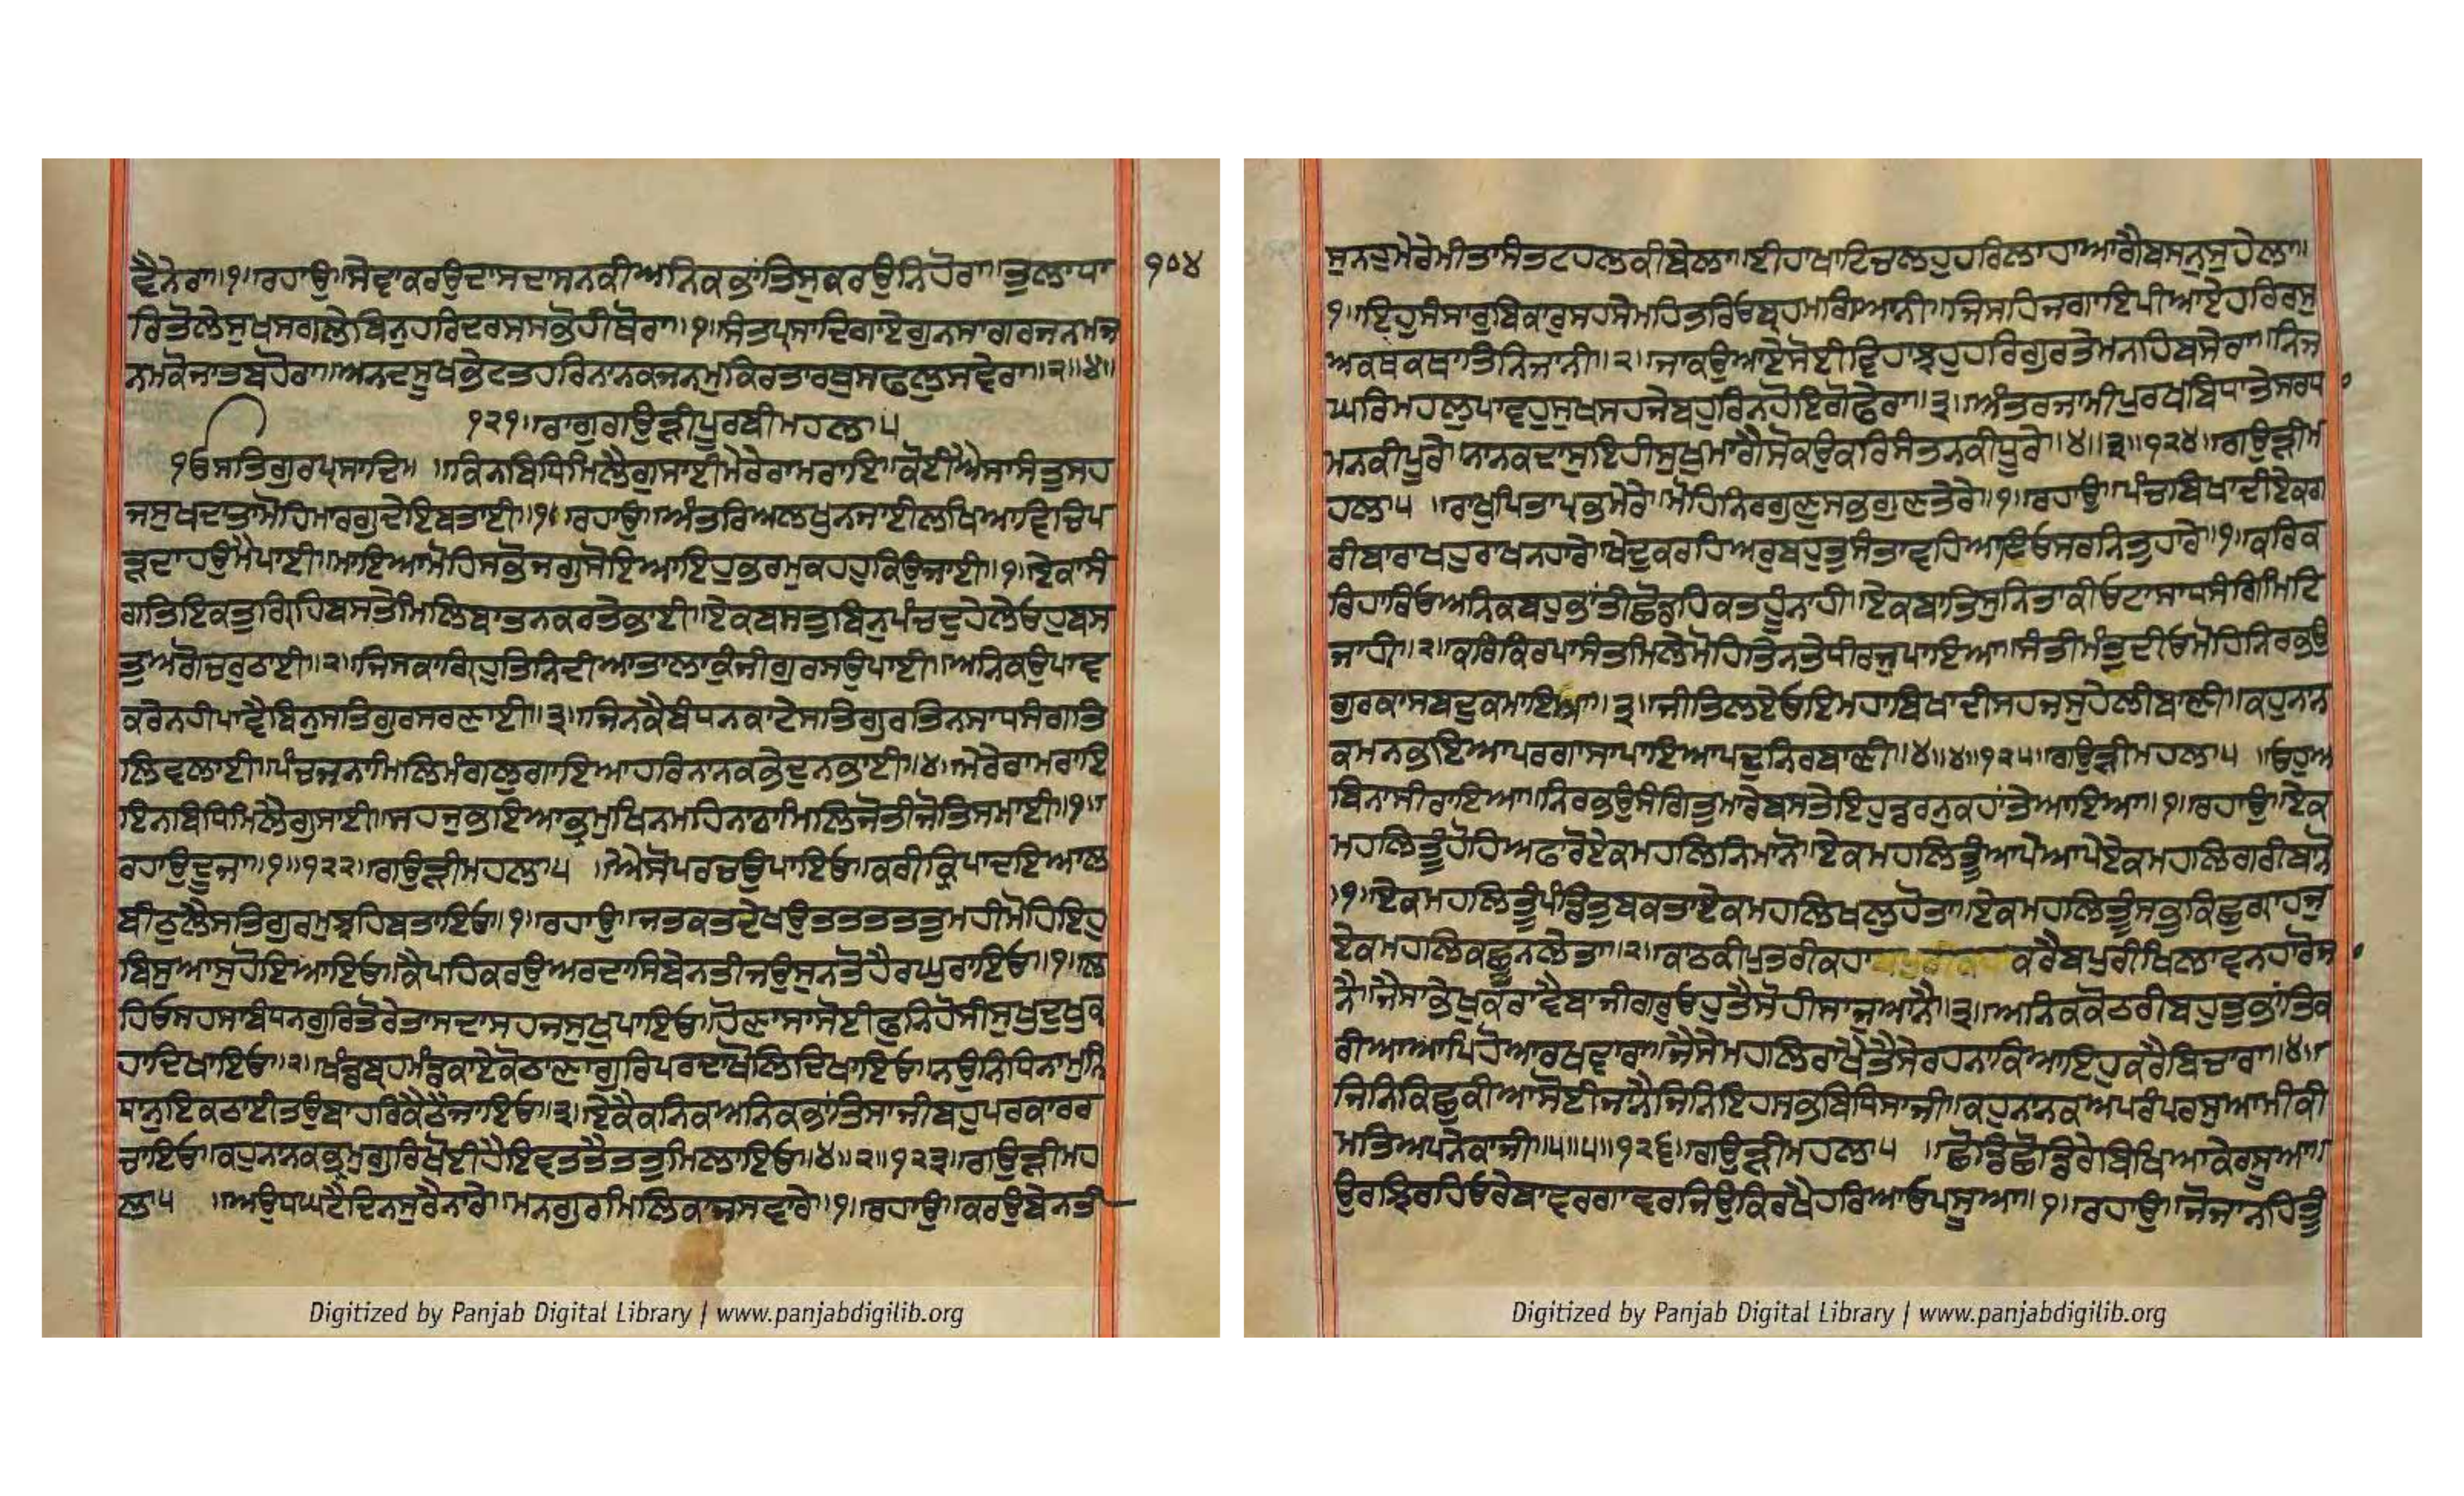 ਵੈਨੇਰਾ॥੧॥ਰਹਾਉ॥ਸੇਵਾਕਰਉਦਾਸਦਾਸਨਕੀਅਨਿਕਭਾਂਤਿਸੁਕਰਉਨਿਹੋਰਾ॥ਤੁਲਾਧਾ
੧੦੪
ਰਿਤੋਲੇਸੁਖਸਗਲੇਬਿਨੁਹਰਿਦਰਸਸਭੋਹੀਥੋਰਾ॥੧॥ਸੰਤਪ੍ਰਸਾਦਿਗਾਏਗੁਨਸਾਗਰਜਨਮਜ
ਨਮਕੋਜਾਤਬਹੋਰਾ॥ਅਨਦਸੂਖਭੇਟਤਹਰਿਨਾਨਕਜਨਮੁਕਿਰਤਾਰਥੁਸਫਲੁਸਵੇਰਾ॥੨॥੪॥
੧੨੧॥ਰਾਗੁਗਉੜੀਪੂਰਬੀਮਹਲਾ੫
ੴਸਤਿਗੁਰਪ੍ਰਸਾਦਿ॥ ॥ਕਿਨਬਿਧਿਮਿਲੈਗੁਸਾਈਮੇਰੇਰਾਮਰਾਇ॥ਕੋਈਐਸਾਸੰਤੁਸਹ
ਜਸੁਖਦਾਤਾਮੋਹਿਮਾਰਗੁਦੇਇਬਤਾਈ॥੧॥ਰਹਾਉ॥ਅੰਤਰਿਅਲਖੁਨਜਾਈਲਖਿਆਵਿਚਿਪ
ੜਦਾਹਉਮੈਪਾਈ॥ਮਾਇਆਮੋਹਿਸਭੋਜਗੁਸੋਇਆਇਹੁਭਰਮੁਕਹਹੁਕਿਉਜਾਈ॥੧॥ਏਕਾਸੰ
ਗਤਿਇਕਤੁਗ੍ਰਿਹਿਬਸਤੇਮਿਲਿਬਾਤਨਕਰਤੇਭਾਈ॥ਏਕਬਸਤੁਬਿਨੁਪੰਚਦੁਹੇਲੇਓਹਬਸ
ਤੁਅਗੋਚਰਠਾਈ॥੨॥ਜਿਸਕਾਗ੍ਰਿਹੁਤਿਨਿਦੀਆਤਾਲਾਕੁੰਜੀਗੁਰਸਉਪਾਈ॥ਅਨਿਕਉਪਾਵ
ਕਰੇਨਹੀਪਾਵੈਬਿਨੁਸਤਿਗੁਰਸਰਣਾਈ॥੩॥ਜਿਨਕੈਬੰਧਨਕਾਟੇਸਤਿਗੁਰਤਿਨਸਾਧਸੰਗਤਿ
ਲਿਵਲਾਈ॥ਪੰਚਜਨਾਮਿਲਿਮੰਗਲੁਗਾਇਆਹਰਿਨਾਨਕਭੇਦੁਨਭਾਈ॥੪॥ਮੇਰੇਰਾਮਰਾਇ
ਇਨਬਿਧਿਮਿਲੈਗੁਸਾਈ॥ਸਹਜੁਭਇਆਭ੍ਰਮੁਖਿਨਮਹਿਨਾਠਾਮਿਲਿਜੋਤੀਜੋਤਿਸਮਾਈ॥੧॥
ਰਹਾਉਦੂਜਾ॥੧॥੧੨੨॥ਗਉੜੀਮਹਲਾ੫ ॥ਐਸੋਪਰਚਉਪਾਇਓ॥ਕਰੀਕ੍ਰਿਪਾਦਇਆਲ
ਬੀਠੁਲੈਸਤਿਗੁਰਮੁਝਹਿਬਤਾਇਓ॥੧॥ਰਹਾਉ॥ਜਤਕਤਦੇਖਉਤਤਤਤਤੁਮਹੀਮੋਹਿਇਹੁ
ਬਿਸੁਆਸੁਹੋਇਆਇਓ॥ਕੈਪਹਿਕਰਉਅਰਦਾਸਿਬੇਨਤੀਜਉਸੁਨਤੋਹੈਰਘੁਰਾਇਓ॥੧॥ਲ
ਹਿਓਸਹਸਾਬੰਧਨਗੁਰਿਤੋਰੇਤਾਸਦਾਸਹਜਸੁਖੁਪਾਇਓ॥ਹੋਣਾਸਾਸੋਈਫੁਨਿਹੋਸੀਸੁਖੁਦੁਖੁਕ
ਹਾਦਿਖਾਇਓ॥੨॥ਖੰਡਬ੍ਰਹਮੰਡਕਾਏਕੋਠਾਣਾਗੁਰਿਪਰਦਾਖੋਲਿਦਿਖਾਇਓ॥ਨਉਨਿਧਿਨਾਮੁਨਿ
ਧਾਨੁਇਕਠਾਈਤਉਬਾਹਰਿਕੈਠੈਜਾਇਓ॥੩॥ਏਕੈਕਨਿਕਅਨਿਕਭਾਂਤਿਸਾਜੀਬਹੁਪਰਕਾਰਰ
ਚਾਇਓ॥ਕਹੁਨਾਨਕਭ੍ਰਮੁਗੁਰਿਖੋਈਹੈਇਵਤਤੈਤਤੁਮਿਲਾਇਓ॥੪॥੨॥੧੨੩॥ਗਉੜੀਮਹ
ਲਾ੫ ॥ਅਉਧਘਟੈਦਿਨਸੁਰੈਨਾਰੇ॥ਮਨਗੁਰਮਿਲਿਕਾਜਸਵਾਰੇ॥੧॥ਰਹਾਉ॥ਕਰਉਬੇਨਤੀ
ਸੁਨਹੁਮੇਰੇਮੀਤਾਸੰਤਟਹਲਕੀਬੇਲਾ॥ਈਹਾਖਾਟਿਚਲਹੁਹਰਿਲਾਹਾਆਗੈਬਸਨੁਸੁਹੇਲਾ॥
੧॥ਇਹੁਸੰਸਾਰੁਬਿਕਾਰੁਸਹਸੇਮਹਿਤਰਿਓਬ੍ਰਹਮਗਿਆਨੀ॥ਜਿਸਹਿਜਗਾਇਪੀਆਏਹਰਿਰਸੁ
ਅਕਥਕਥਾਤਿਨਿਜਾਨੀ॥੨॥ਜਾਕਉਆਏਸੋਈਵਿਹਾਝਹੁਹਰਿਗੁਰਤੇਮਨਹਿਬਸੇਰਾ॥ਨਿਜ
ਘਰਿਮਹਲੁਪਾਵਹੁਸੁਖਸਹਜੇਬਹੁਰਿਨਹੋਇਗੋਫੇਰਾ॥੩॥ਅੰਤਰਜਾਮੀਪੁਰਖਬਿਧਾਤੇਸਰਧ
ਮਨਕੀਪੂਰੇ॥ਨਾਨਕਦਾਸੁਇਹੀਸੁਖੁਮਾਗੈਮੋਕਉਕਰਿਸੰਤਨਕੀਧੂਰੇ॥੪॥੩॥੧੨੪॥ਗਉੜੀਮ
ਹਲਾ੫ ॥ਰਾਖੁਪਿਤਾਪ੍ਰਭਮੇਰੇ॥ਮੋਹਿਨਿਰਗੁਣੁਸਭਗੁਣਤੇਰੇ॥੧॥ਰਹਾਉ॥ਪੰਚਬਿਖਾਦੀਏਕਗ
ਰੀਬਾਰਾਖਹੁਰਾਖਨਹਾਰੇ॥ਖੇਦੁਕਰਹਿਅਰੁਬਹੁਤੁਸੰਤਾਵਹਿਆਇਓਸਰਨਿਤੁਹਾਰੇ॥੧॥ਕਰਿਕ
ਰਿਹਾਰਿਓਅਨਿਕਬਹੁਭਾਂਤੀਛੋਡਹਿਕਤਹੂੰਨਾਹੀ॥ਏਕਬਾਤਿਸੁਨਿਤਾਕੀਓਟਾਸਾਧਸੰਗਿਮਿਟਿ
ਜਾਹੀ॥੨॥ਕਰਿਕਿਰਪਾਸੰਤਮਿਲੇਮੋਹਿਤਿਨਤੇਧੀਰਜੁਪਾਇਆ॥ਸੰਤੀਮੰਤੁਦੀਓਮੋਹਿਨਿਰਭਉ
ਗੁਰਕਾਸਬਦੁਕਮਾਇਆ॥੩॥ਜੀਤਿਲਏਓਇਮਹਾਬਿਖਾਦੀਸਹਜਸੁਹੇਲੀਬਾਣੀ॥ਕਹੁਨਾਨ
ਕਮਨਭਇਆਪਰਗਾਸਾਪਾਇਆਪਦੁਨਿਰਬਾਣੀ॥੪॥੪॥੧੨੫॥ਗਉੜੀਮਹਲਾ੫ ॥ਓਹੁਅ
ਬਿਨਾਸੀਰਾਇਆ॥ਨਿਰਭਉਸੰਗਿਤੁਮਾਰੈਬਸਤੇਇਹੁਡਰਨੁਕਹਾਂਤੇਆਇਆ॥੧॥ਰਹਾਉ॥ਏਕ
ਮਹਲਿਤੂੰਹੋਹਿਅਫਾਰੋਏਕਮਹਲਿਨਿਮਾਨੋ॥ਏਕਮਹਲਿਤੂੰਆਪੇਆਪੇਏਕਮਹਲਿਗਰੀਬਾਨੋ
॥੧॥ਏਕਮਹਲਿਤੂੰਪੰਡਿਤੁਬਕਤਾਏਕਮਹਲਿਖਲੁਹੋਤਾ॥ਏਕਮਹਲਿਤੂੰਸਭੁਕਿਛੁਗ੍ਰਾਹਜੁ
ਏਕਮਹਲਿਕਛੂਨਲੇਤਾ॥੨॥ਕਾਠਕੀਪੁਤਰੀਕਹਾ ਕਰੈਬਪੁਰੀਖਿਲਾਵਨਹਾਰੋਜਾ
ਨੈ॥ਜੈਸਾਭੇਖੁਕਰਾਵੈਬਾਜੀਗਰੁਓਹੁਤੈਸੋਹੀਸਾਜੁਆਨੈ॥੩॥ਅਨਿਕਕੋਠਰੀਬਹੁਤੁਭਾਂਤਿਕ
ਰੀਆਆਪਿਹੋਆਰਖਵਾਰਾ॥ਜੈਸੇਮਹਲਿਰਾਖੈਤੈਸੇਰਹਨਾਕਿਆਇਹੁਕਰੈਬਿਚਾਰਾ॥੪॥
ਜਿਨਿਕਿਛੁਕੀਆਸੋਈਜਾਨੈਜਿਨਿਇਹਸਭਬਿਧਿਸਾਜੀ॥ਕਹੁਨਾਨਕਅਪਰੰਪਰਸੁਆਮੀਕੀ
ਮਤਿਅਪਨੇਕਾਜੀ॥੫॥੫॥੧੨੬॥ਗਉੜੀਮਹਲਾ੫ ॥ਛੋਡਿਛੋਡਿਰੇਬਿਖਿਆਕੇਰਸੂਆ॥
ਉਰਝਿਰਹਿਓਰੇਬਾਵਰਗਾਵਰਜਿਉਕਿਰਖੈਹਰਿਆਓਪਸੂਆ॥੧॥ਰਹਾਉ॥ਜੋਜਾਨਹਿਤੂੰ
Digitized by Panjab Digital Library | www.panjabdigilib.org
Digitized by Panjab Digital Library | www.panjabdigilib.org